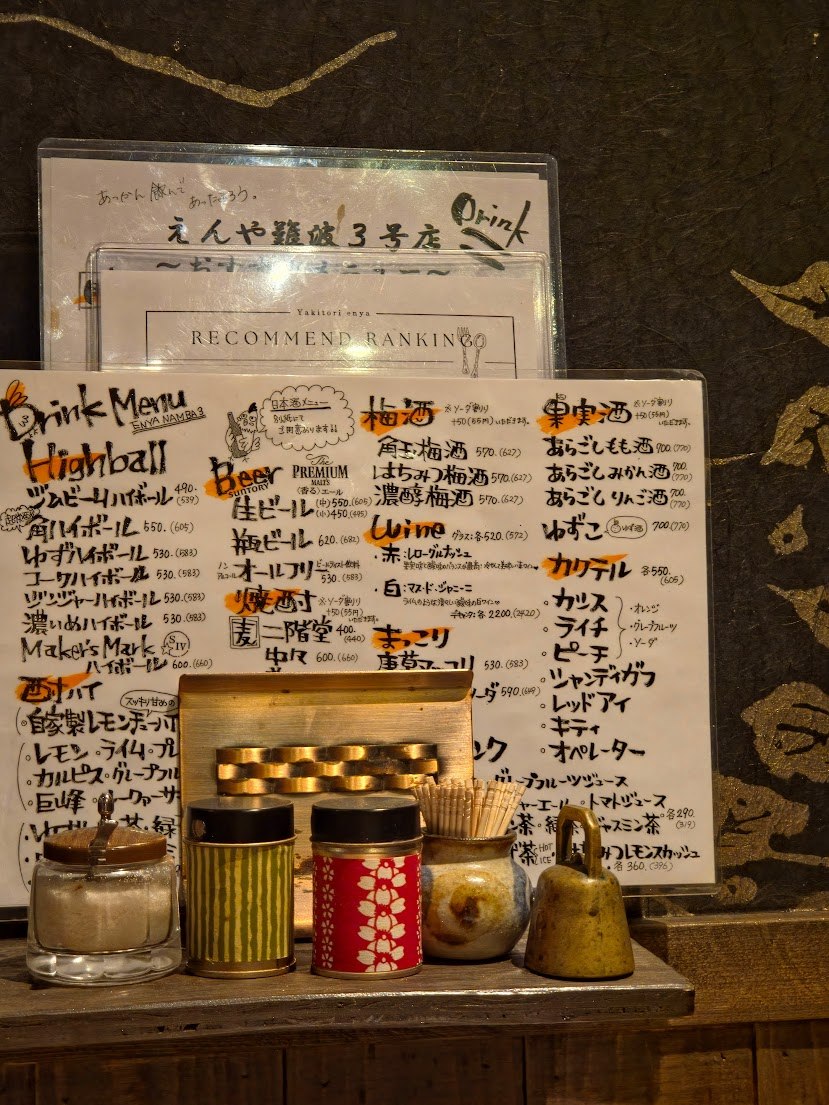 あっかん飲んで
あったまろう。
えんや難波3号店
Drink
Yakitori enya
RECOMMEND RANKING
Drink Menu
ENYA NAMBA 3
Highball
ジムビームハイボール 490.(539)
角ハイボール 550.(605)
ゆずハイボール 530.(583)
コークハイボール 530.(583)
ジンジャーハイボール 530.(583)
濃いめハイボール 530.(583)
Maker's Mark
ハイボール 600.(660)
酎ハイ
スッキリ甘めの
自家製レモンチューハイ
・レモン・ライム・プレ
・カルピス・グレープフル
・巨峰
日本酒メニュー
別紙にて
ご用意あります!!
Beer
SUNTORY
The PREMIUM MALT'S
〈香る〉エール
生ビール (中)550.(605)
(小)450.(495)
瓶ビール 620.(682)
ノンアルコール オールフリー ビールテイスト飲料
530.(583)
焼酎 ※ソーダ割り
+50(55円)
いただきます。
麦 二階堂 400.(440)
中々 600.(660)
梅酒 ※ソーダ割り
+50(55円)いただきます。
角玉梅酒 570.(627)
はちみつ梅酒 570.(627)
濃醇梅酒 570.(627)
Wine グラス:各520.(572)
・赤:
・白:
各2200.(2420)
まっこり
530.(583)
ソーダ 590.(649)
ンク
グレープフルーツジュース
ャーエール・トマトジュース
茶・緑茶・ジャスミン茶 各290.(319)
茶 HOT ICE
みつレモンスカッシュ
各360.(396)
果実酒 ※ソーダ割り
+50(55円)
いただきます。
あらごしもも酒 700.(770)
あらごしみかん酒 700.(770)
あらごしりんご酒 700.(770)
ゆずこ ゆず酒 700(770)
カクテル 各550.(605)
・カシス
・ライチ
・ピーチ
・オレンジ
・グレープフルーツ
・ソーダ
・シャンディガフ
・レッドアイ
・キティ
・オペレーター